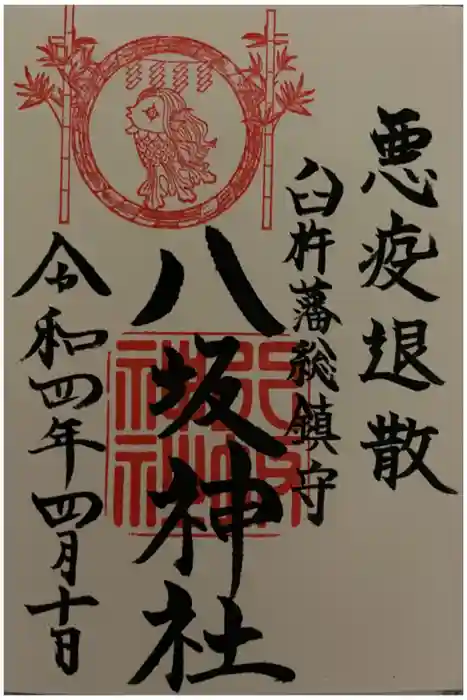 悪疫退散
臼杵藩総鎮守
八坂神社
令和四年四月十日
八坂
神社